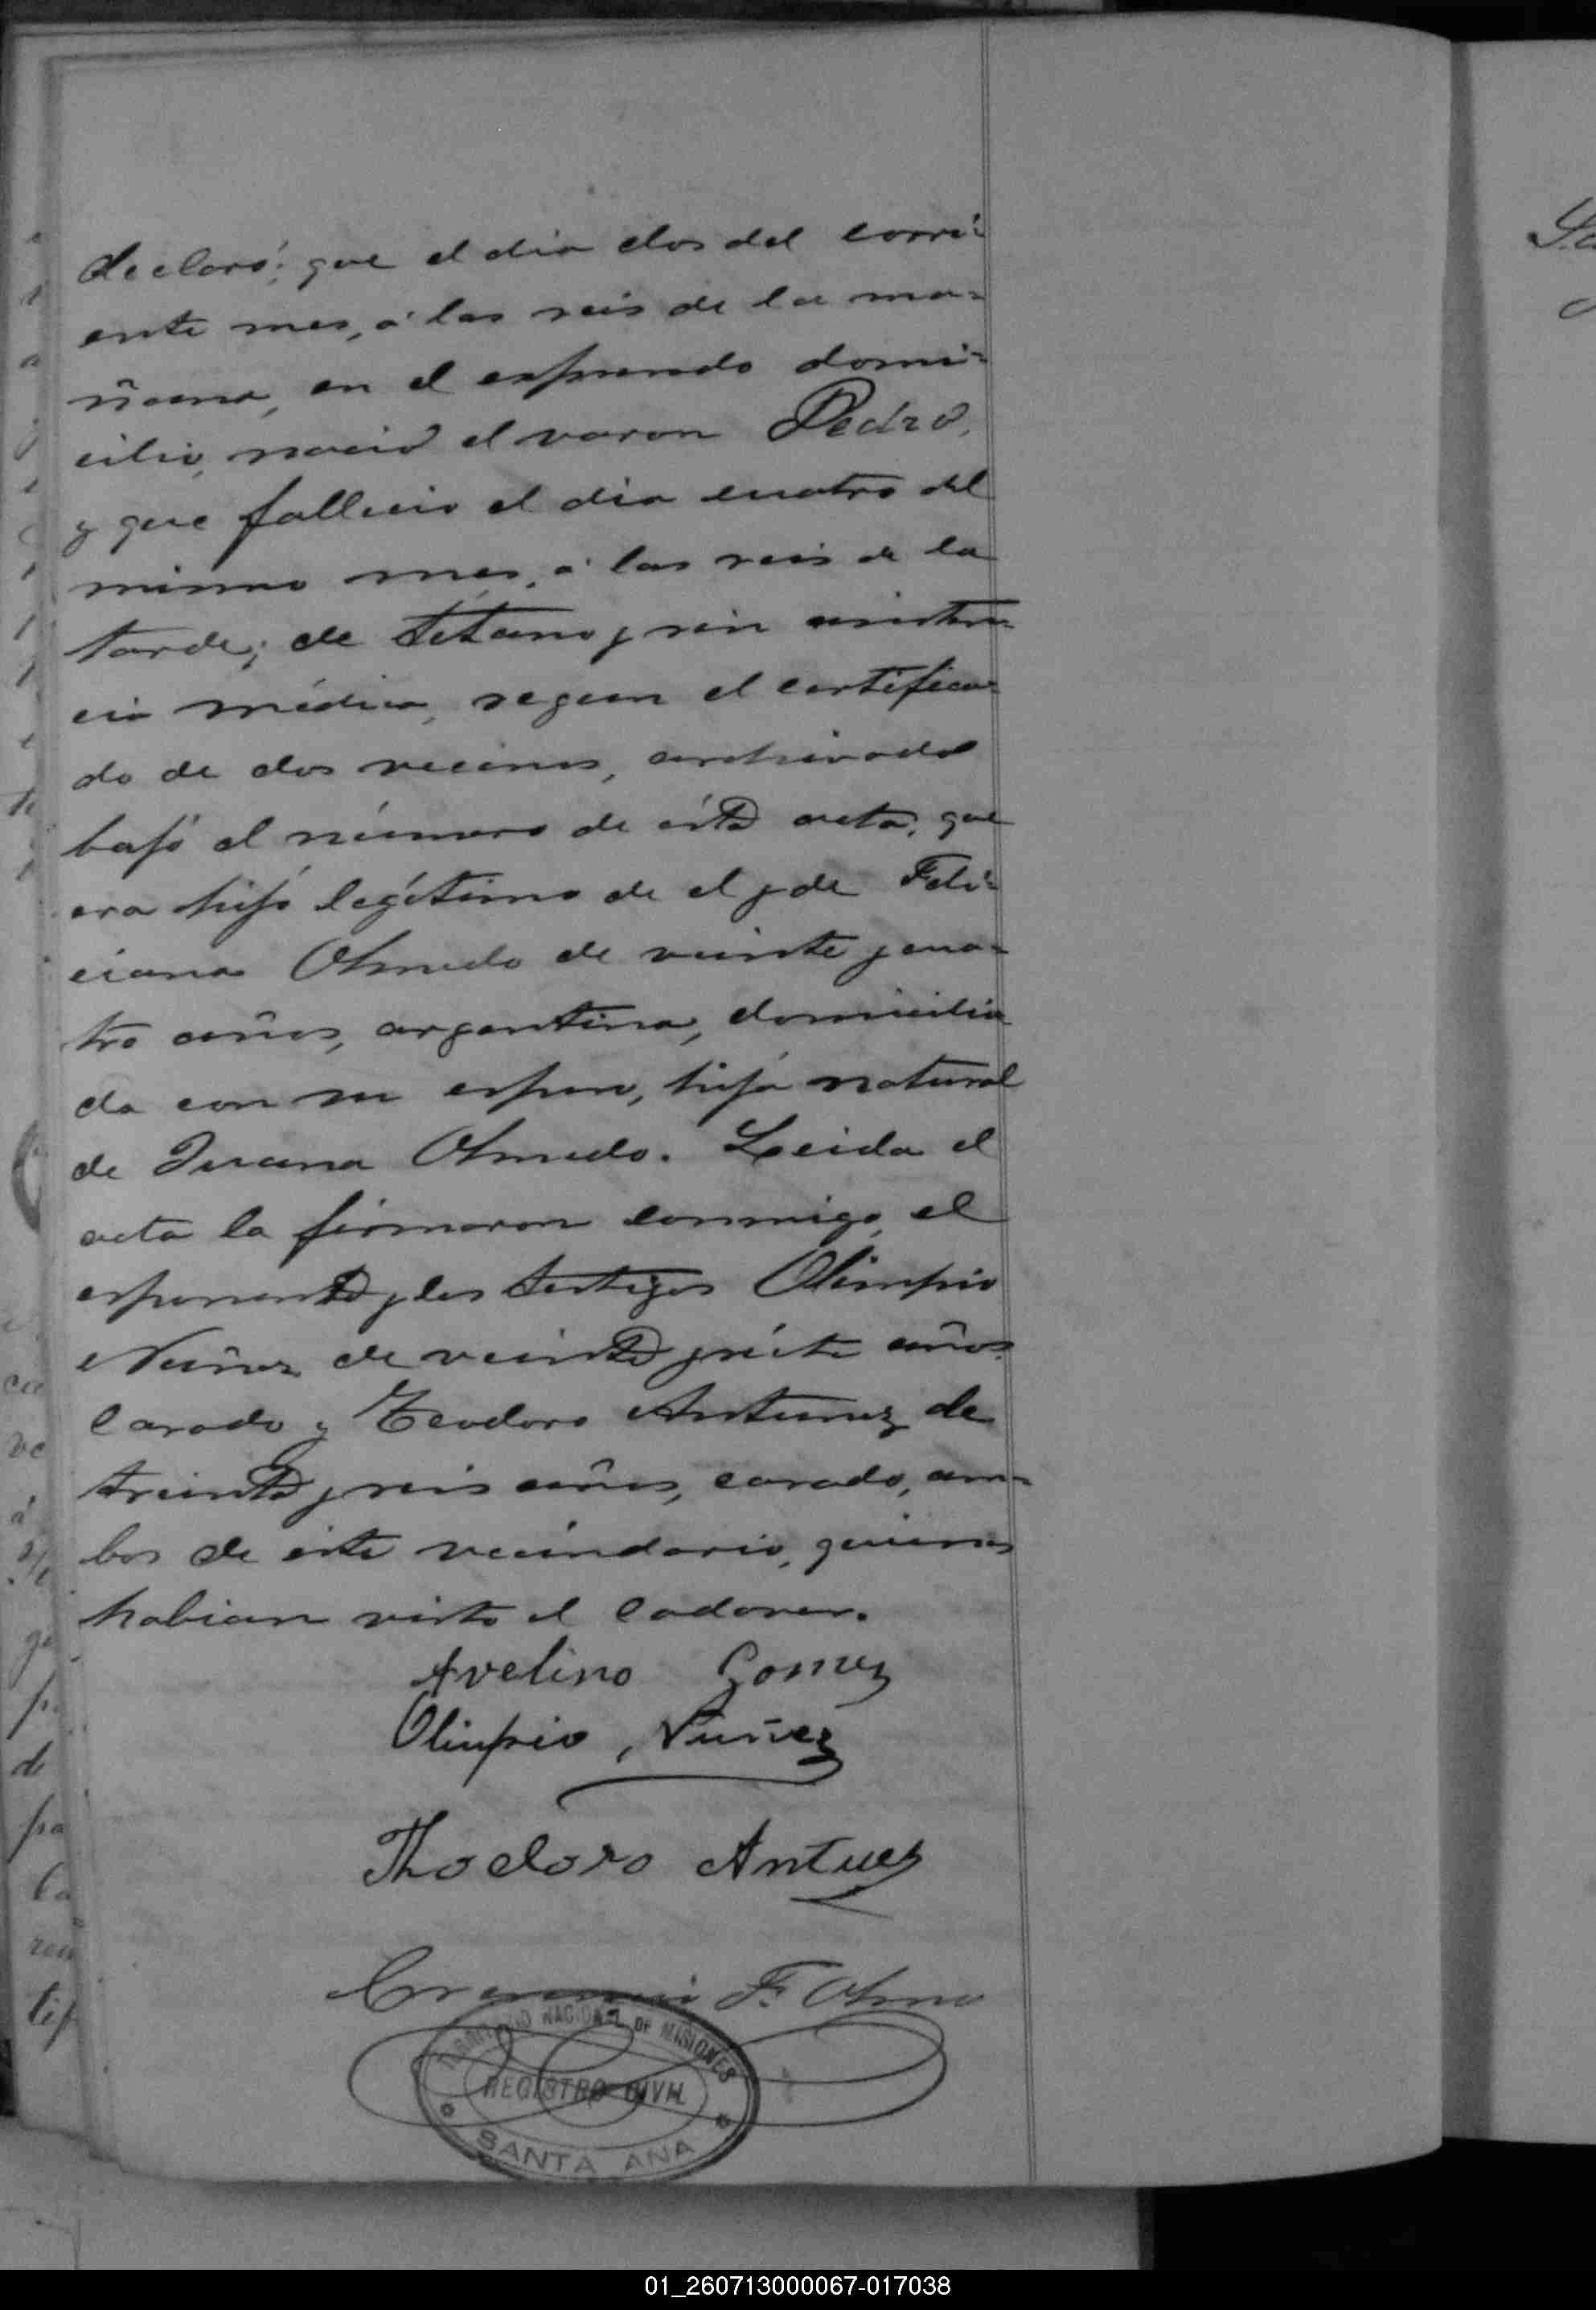 declaró: que el dia dos del corri-
ente mes, á las seis de la ma-
ñana, en el espresado domi-
cilio, nació el varon Pedro,
y que fallecio el dia cuatro del
mismo mes, á las seis de la
tarde; de tétano y sin asisten-
cia médica, segun el certifica-
do de dos vecinos, archivado
bajo el número de ésta acta, que
era hijo legítimo de el y de Feli-
ciana Olmedo de veinte y cua-
tro años, argentina, domicilia
da con su esposo, hija natural
de Juana Olmedo. Leida el
acta la firmaron conmigo, el
esponente y los testigos Olimpio
Nuñez de veinte y siete años
casado y Teodoro Antunez de
treinta y seis años, casado, am-
bos de éste vecindario, quienes
habian visto el cadaver.
Avelino Gomez
Olimpio Nuñez
Thodoro Antuez
F. Olmo
TERRITORIO NACIONAL DE MISIONES
REGISTRO CIVIL
SANTA ANA
01_260713000067-017038